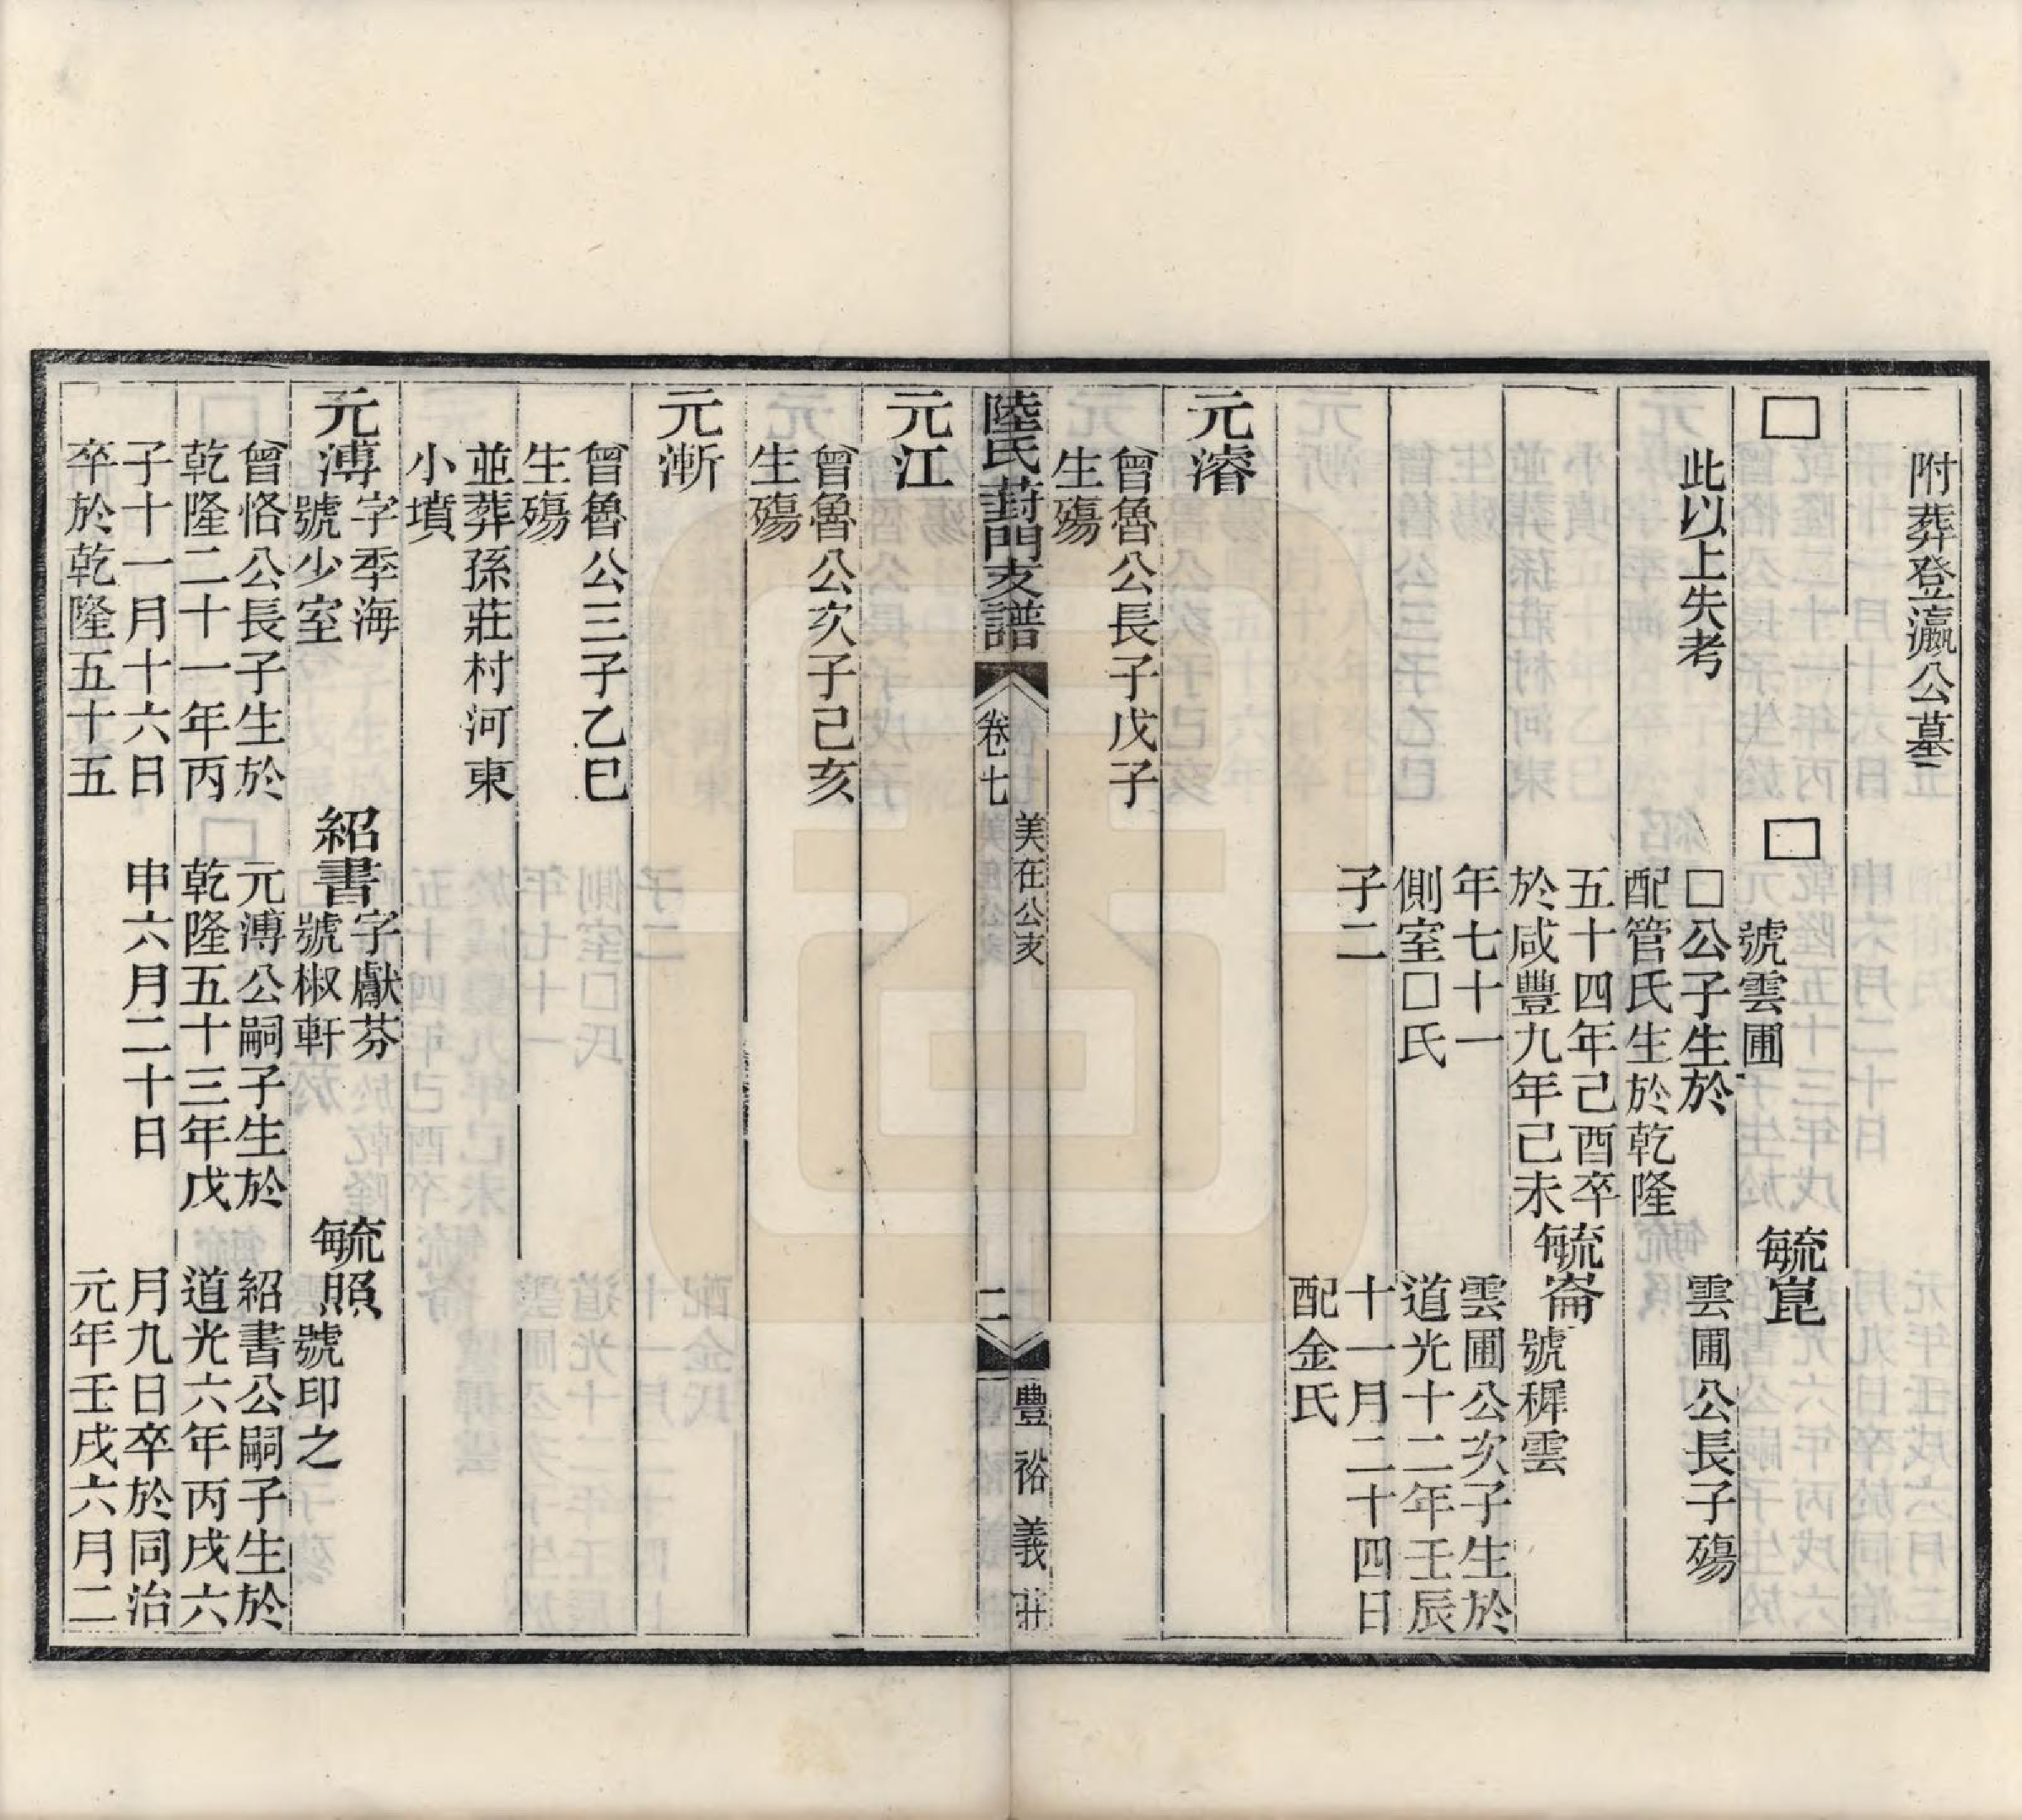 附葬登瀛公墓
□
此以上失考
□
號雲圃
□公子生於
配管氏生於乾隆
五十四年己酉卒
於咸豐九年己未
年七十一
側室□氏
子二
毓崑
雲圃公長子殤
毓崙
號穉雲
雲圃公次子生於
道光十二年壬辰
十一月二十四日
配金氏
元濬
曾魯公長子戊子
生殤
陸氏葑門支譜
卷七
美在公支
二
豐裕義莊
元江
曾魯公次子己亥
生殤
元漸
曾魯公三子乙巳
生殤
並葬孫莊村河東
小墳
元溥
字季海
號少室
曾恪公長子生於
乾隆二十一年丙
子十一月十六日
卒於乾隆五十五
紹書
字獻芬
號椒軒
元溥公嗣子生於
乾隆五十三年戊
申六月二十日
毓照
號印之
紹書公嗣子生於
道光六年丙戌六
月九日卒於同治
元年壬戌六月二